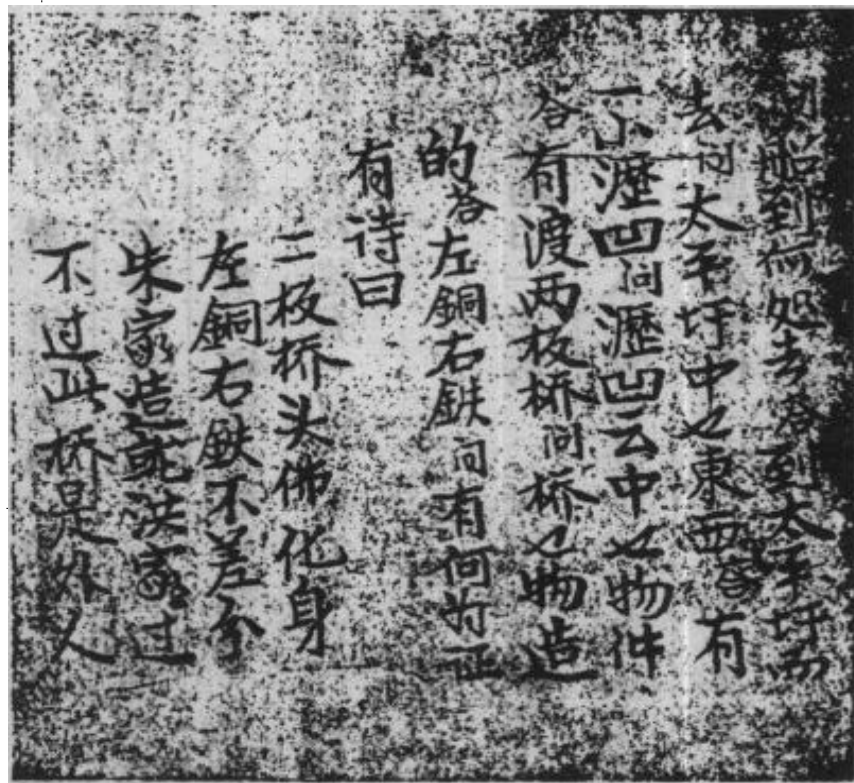 船到何处去答到太平圩而
去问太平圩中乂東西答有
一小瀝凹问瀝凹云中乂物件
答有渡两板桥问桥乂物造
的答左銅右鉄问有何为证
有诗曰
二板桥头佛化身
左銅右鉄不差分
朱家造就洪家过
不过此桥是外人